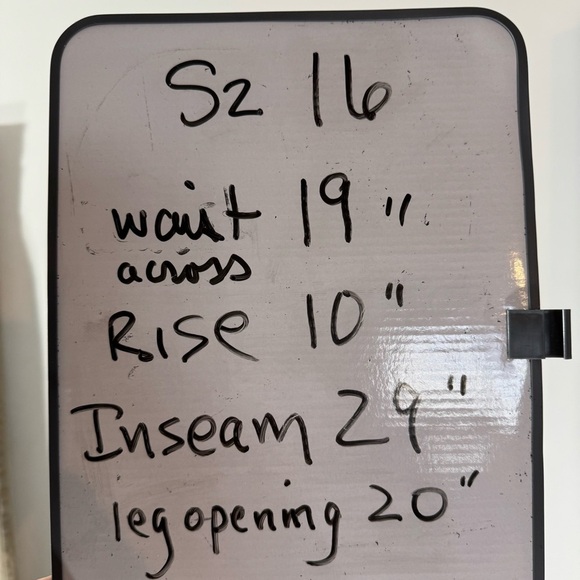 Sz 16
waist 19"
across
Rise 10"
Inseam 29"
leg opening 20"